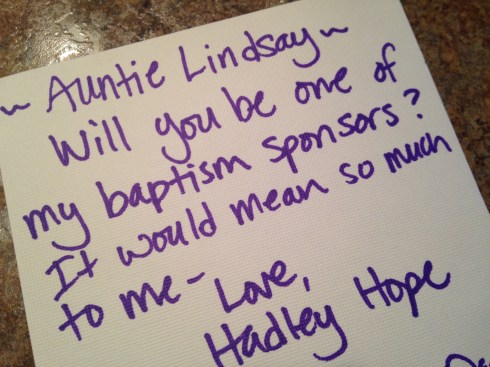 ~ Auntie Lindsay ~
Will you be one of
my baptism sponsors?
It would mean so much
to me - Love,
Hadley Hope